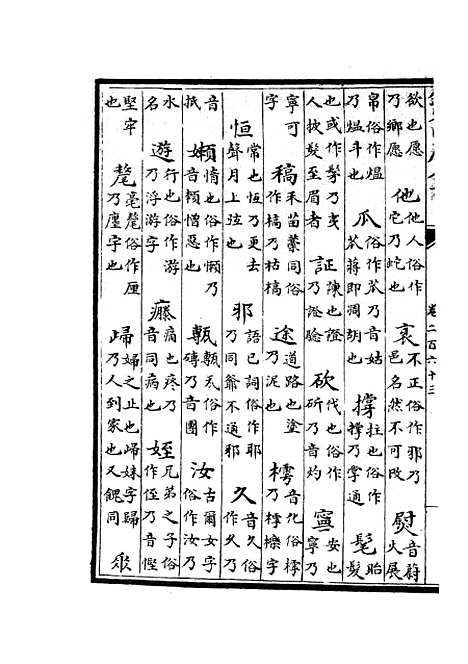 卷二百六十三
欲也愿乃鄉愿 他他人俗作它乃蛇也 衺不正俗作邪乃邑名然不可改 熨音蔚火展
帛俗作熅乃熅斗也 瓜俗作苽乃音姑苽蔣即凋胡也 撐拄也俗作撑乃掌通 髦髮
也或作髳乃人披髮至眉者 証諫也證乃證騐 砍伐也俗作斫乃音灼 寧安也寧乃
寧可字 稿禾苗藁同俗作槁乃枯槁 途道路也塗乃泥也 樗音化俗樗乃樗櫟字
恒常也恆乃更去聲月上弦也 邪語已詞俗作耶乃同爺不通邪 久音久俗作久乃
音抵 嬾惰也俗作懶乃音賴憎惡也 甎甎瓦俗作磚乃音團 汝古爾女字俗作汝乃
水名 遊行也俗作游乃浮游字 痛也疼乃音同病也 姪兄弟之子俗作侄乃音慳
堅牢也 氂毫氂俗作厘乃廛字也 婦之止也妹字歸乃人到家也又餽同